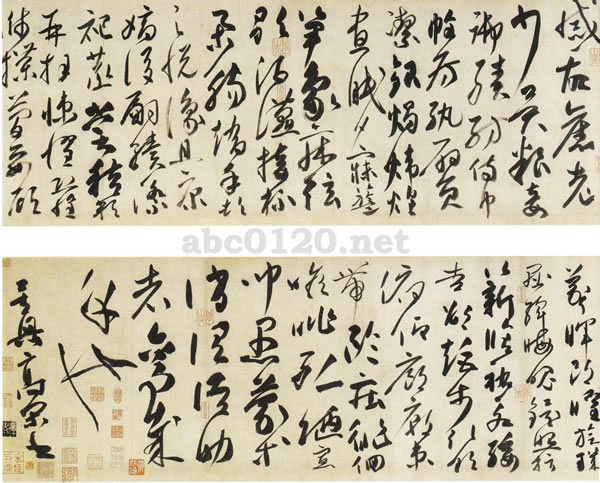 戚故舊老
少異粮妾
御績紡侍巾
帷房紈扇員
潔銀燭煒煌
晝眠夕寐籃
笋象床弦
歌酒讌接杯
舉觴矯手頓
足悅豫且康
嫡後嗣續祭
祀蒸嘗稽顙
再拜悚懼
牒簡要顧
abc0120.net
羲暉朗曜旋璣
懸斡晦魄環照指
薪修祜永綏
吉劭矩步引領
俯仰廊廟束
帶矜莊徘徊
瞻眺孤陋寡
聞愚蒙等
誚謂語助
者焉哉
乎也
吳興